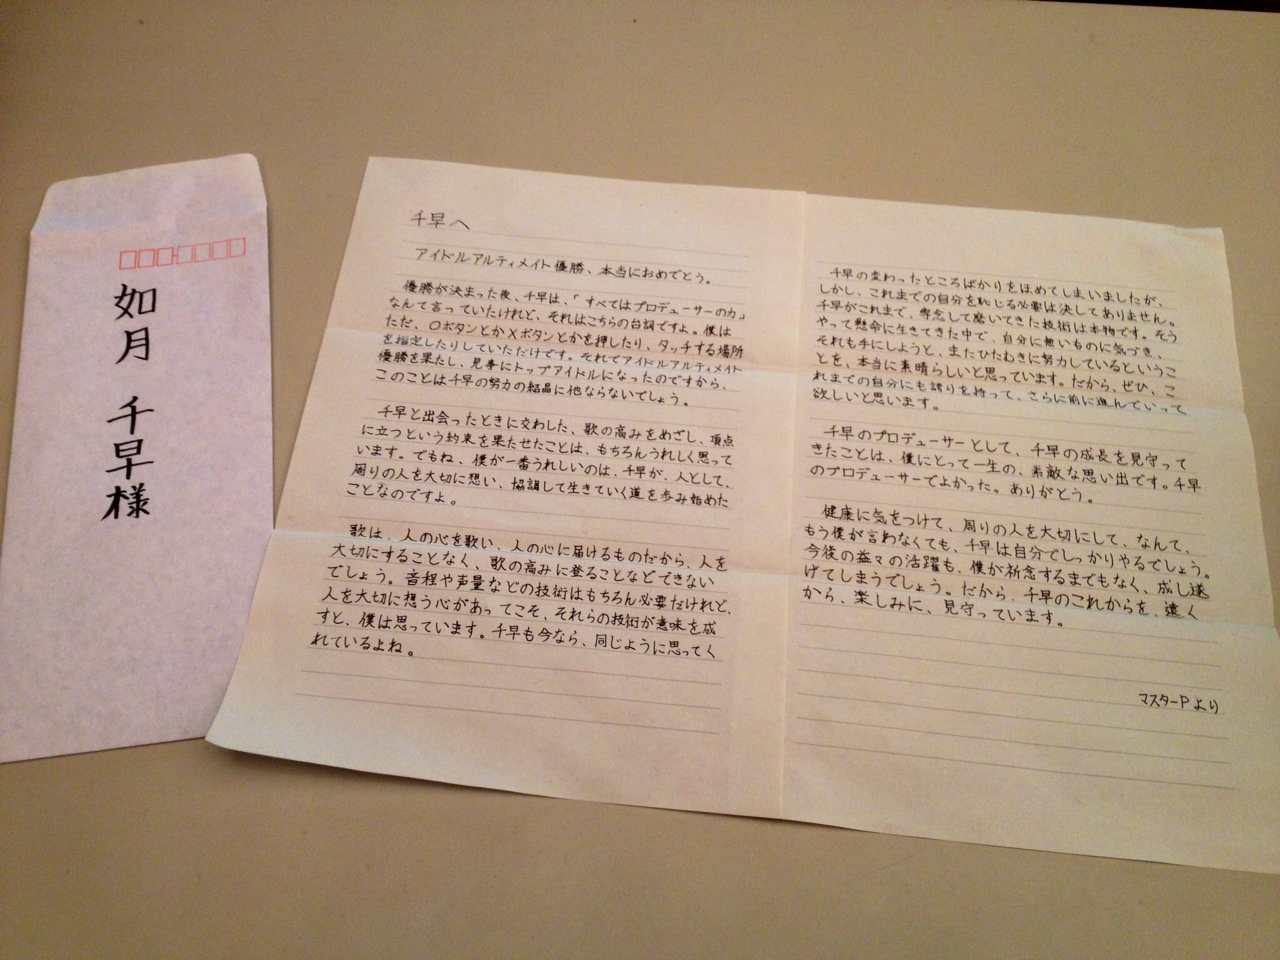 如月 千早様
千早へ
アイドルアルティメイト優勝、本当におめでとう。
優勝が決まった後、千早は、「すべてはプロデューサーの力」
なんて言っていたけれど、それはこちらの台詞ですよ。僕は
ただ、○ボタンとか×ボタンとかを押したり、タッチする場所
を指定したりしていただけです。それでアイドルアルティメイト
優勝を果たし、見事にトップアイドルになったのですから、
このことは千早の努力の結晶に他ならないでしょう。
千早と出会ったときに交わした、歌の高みをめざし、頂点
に立つという約束を果たせたことは、もちろんうれしく思って
います。でもね、僕が一番うれしいのは、千早が、人として、
周りの人を大切に想い、協調して生きていく道を歩み始めた
ことなのですよ。
歌は、人の心を歌い、人の心に届けるものだから、人を
大切にすることなく、歌の高みに登ることなどできない
でしょう。音程や声量などの技術はもちろん必要だけれど、
人を大切に想う心があってこそ、それらの技術が意味を成
すと、僕は思っています。千早も今なら、同じように思ってく
れているよね。
千早の変わったところばかりをほめてしまいましたが、
しかし、これまでの自分を恥じる必要は決してありません。
千早がこれまで、専念して磨いてきた技術は本物です。そう
やって懸命に生きてきた中で、自分に無いものに気づき、
それも手にしようと、またひたむきに努力しているというこ
とを、本当に素晴らしいと思っています。だから、ぜひ、こ
れまでの自分にも誇りを持って、さらに前に進んでいって
欲しいと思います。
千早のプロデューサーとして、千早の成長を見守って
きたことは、僕にとって一生の、素敵な思い出です。千早
のプロデューサーでよかった。ありがとう。
健康に気をつけて、周りの人を大切にして、なんて、
もう僕が言わなくても、千早は自分でしっかりやるでしょう。
今後の益々の活躍も、僕が祈念するまでもなく、成し遂
げてしまうでしょう。だから、千早のこれからを、遠く
から、楽しみに、見守っています。
マスターPより